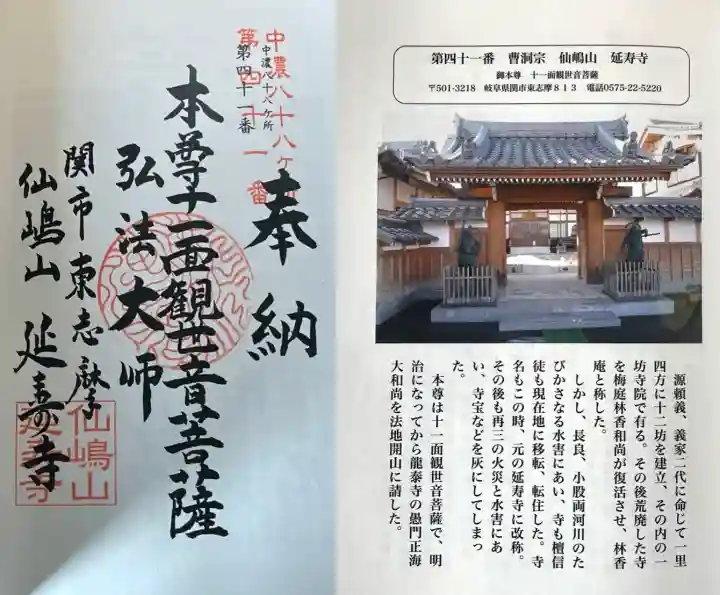 中濃八十八ヶ所
第四十一番
中濃八十八ヶ所
第四十一番
奉納
本尊十一面観世音菩薩
弘法大師
関市東志摩
仙嶋山 延寿寺
仙嶋山
延寿寺
第四十一番 曹洞宗 仙嶋山 延寿寺
御本尊 十一面観世音菩薩
〒501-3218 岐阜県関市東志摩８１３ 電話0575-22-5220
源頼義、義家二代に命じて一里
四方に十二坊を建立、その内の一
坊寺院で有る。その後荒廃した寺
を梅庭林香和尚が復活させ、林香
庵と称した。
しかし、長良、小股両河川のた
びかさなる水害にあい、寺も檀信
徒も現在地に移転、転住した。寺
名もこの時、元の延寿寺に改称。
その後も再三の火災と水害にあ
い、寺宝などを灰にしてしまっ
た。
本尊は十一面観世音菩薩で、明
治になってから龍泰寺の愚門正海
大和尚を法地開山に請した。